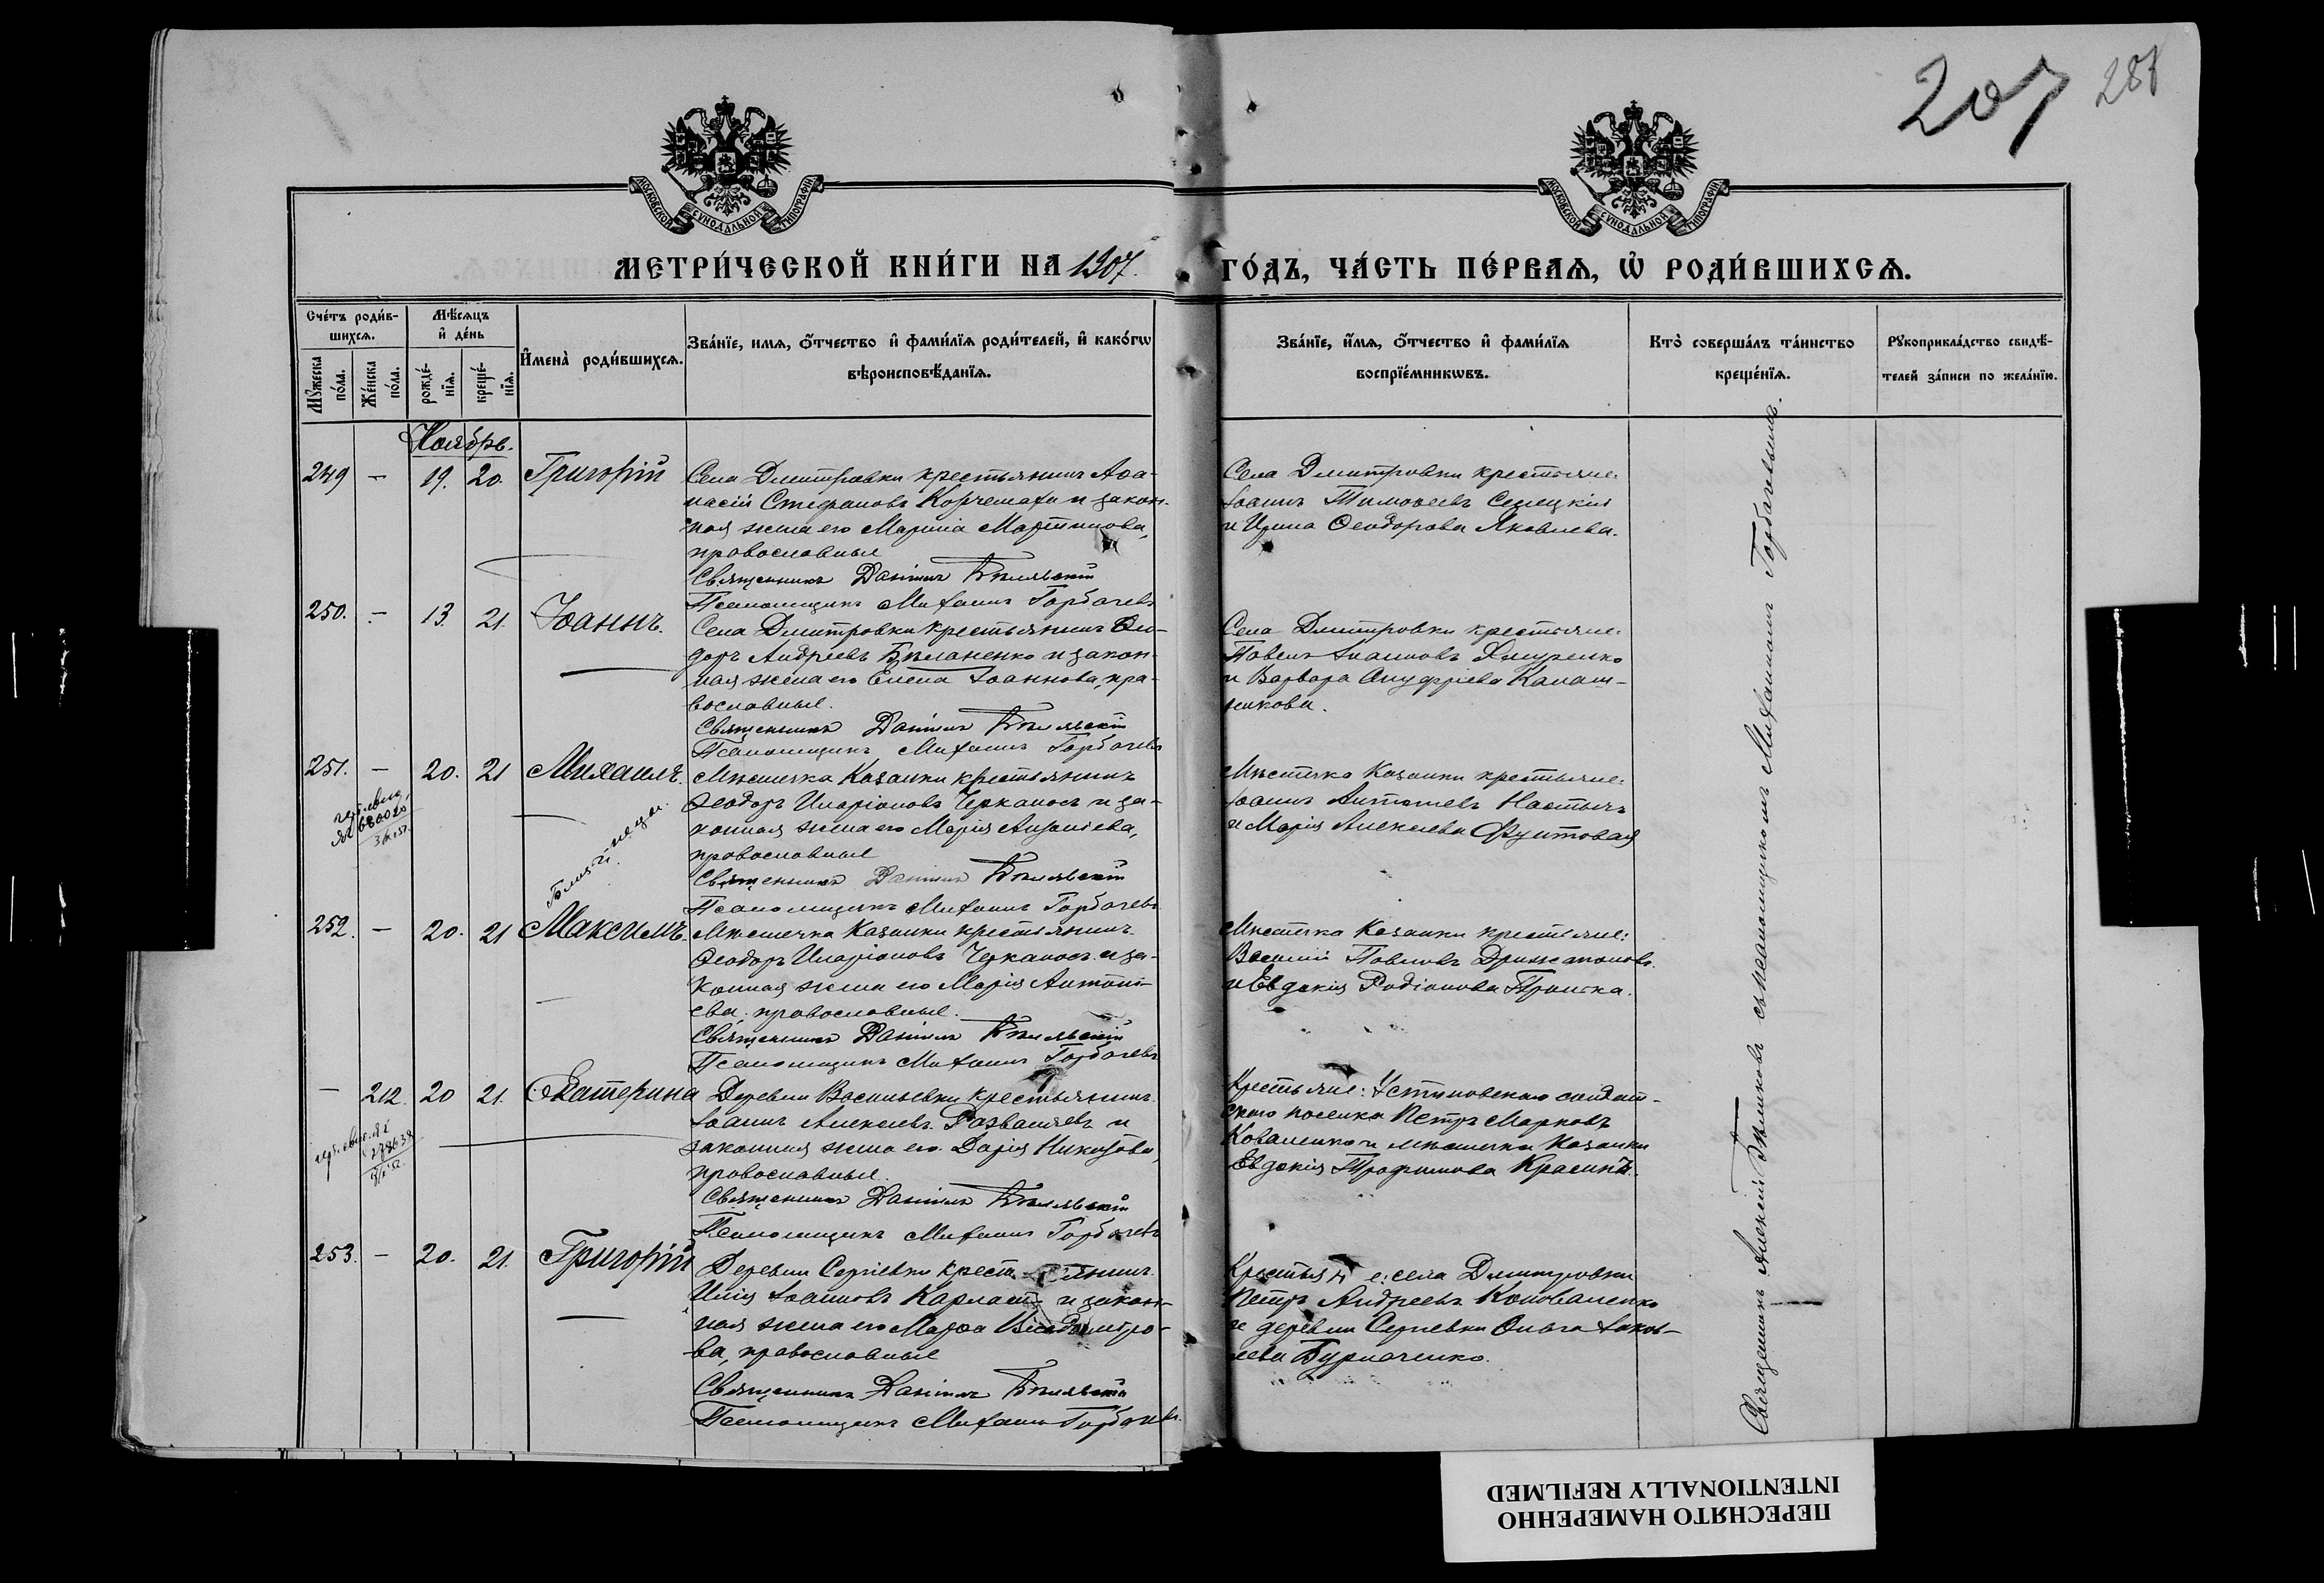 207 288
МОСКОВСКОЙ СѴНОДАЛЬНОЙ ТИПОГРАФІИ
МОСКОВСКОЙ СѴНОДАЛЬНОЙ ТИПОГРАФІИ
МЕТРИ́ЧЕСКОЙ КНИ́ГИ НА 1907.
ГО́ДЪ, ЧА́СТЬ ПЕ́РВАѦ, Ѽ РОДИ́ВШИХСѦ.
Сче́тъ роди́в-
шихсѧ.
Мꙋ́жеска
по́ла.
Же́нска
по́ла.
Мѣ́сѧцъ
и҆ де́нь
рожде́-
нїѧ.
креще́-
нїѧ.
И҆мена̀ роди́вшихсѧ.
Зва́нїе, имѧ, ѻ҆́тчество и҆ фами́лїѧ роди́телей, и҆ како́гѡ
вѣроисповѣ́данїѧ.
Зва́нїе, и҆́мѧ, ѻ҆́тчество и҆ фами́лїѧ
воспрїе́мникѡвъ.
Кто̀ соверша́лъ та́инство
креще́нїѧ.
Рꙋкоприкла́дство свидѣ́-
телей за́писи по жела́нїю.
Ноябрь.
249 – 19. 20. Григорій
Села Дмитровки крестьянинъ Аѳа-
насій Стефановъ Корчемаха и закон-
ная жена его Марина Мартинова,
православные
Священникъ Даніилъ Бѣлявскій
Псаломщикъ Михаилъ Горбачевъ
Села Дмитровки крестьяне:
Іоаннъ Тимоѳеевъ Селецкій
и Ирина Ѳеодорова Яковлева.
250. – 13. 21. Іоаннъ.
Села Дмитровки крестьянинъ Ѳео-
доръ Андреевъ Бѣланенко и закон-
ная жена его Елена Іоаннова, пра-
вославные.
Священникъ Даніилъ Бѣлявскій
Псаломщикъ Михаилъ Горбачевъ
Села Дмитровки крестьяне:
Павелъ Іоанновъ
и Варвара Онуфріева Калаш-
никова.
251. – 20. 21 Михаилъ.
680020
Близнецы.
Мѣстечка Казанки крестьянинъ
Ѳеодоръ Иларіоновъ Черканосъ и за-
конная жена его Марія Антоніева,
православные
Священникъ Даніилъ Бѣлявскій
Псаломщикъ Михаилъ Горбачевъ
Мѣстечка Казанки крестьяне:
Іоаннъ Антоніевъ Настычъ
и Марія Алексѣева Фунтовая
252. – 20. 21 Максимъ.
Мѣстечка Казанки крестьянинъ
Ѳеодоръ Иларіоновъ Черканосъ и за-
конная жена его Марія Антоні-
ева, православные.
Священникъ Даніилъ Бѣлявскій
Псаломщикъ Михаилъ Горбачевъ
Мѣстечка Казанки крестьяне:
Василій Павловъ
и Евдокія Родіонова
– 212. 20 21. Екатерина
278638
Деревни Васильевки крестьянинъ
Іоаннъ Алексѣевъ и
законная жена его Дарія
православные.
Священникъ Даніилъ Бѣлявскій
Псаломщикъ Михаилъ Горбачевъ
Крестьяне: Устиновскаго солдат-
скаго поселка Петръ Марковъ
Коваленко и мѣстечка Казанки
Евдокія Трофимова
253. – 20. 21. Григорій
Деревни Сергіевки крестьянинъ
Илія Іоанновъ Карлаш и закон-
ная жена его Марѳа
ва, православные
Священникъ Даніилъ Бѣлявскій
Псаломщикъ Михаилъ Горбачевъ.
Крестьяне: села Дмитровки
Петръ Андреевъ Коноваленко
и деревни Сергіевки Ольга Іаков-
лева Бурлаченко.
Священникъ Алексій Бѣликовъ съ псаломщикомъ Михаиломъ Горбачевымъ.
ПЕРЕСНЯТО НАМЕРЕННО
INTENTIONALLY REFILMED